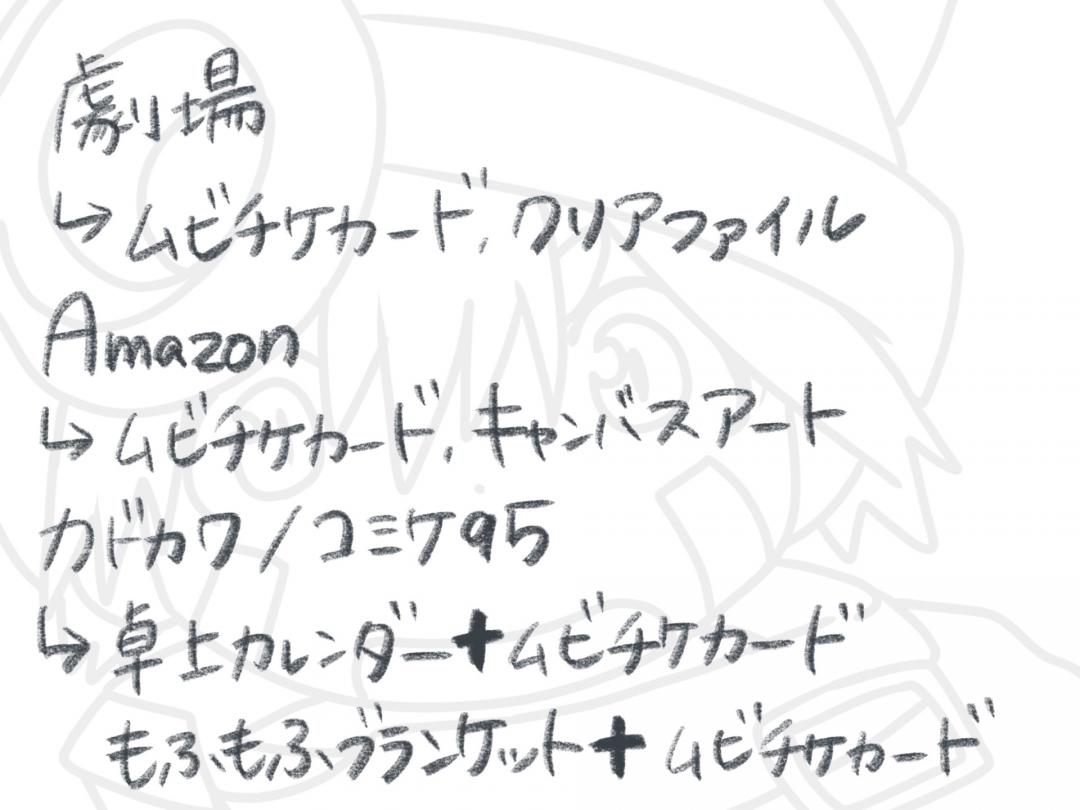 劇場
↳ムビチケカード,クリアファイル
Amazon
↳ムビチケカード,キャンバスアート
カドカワ/コミケ95
↳卓上カレンダー+ムビチケカード
もふもふブランケット+ムビチケカード